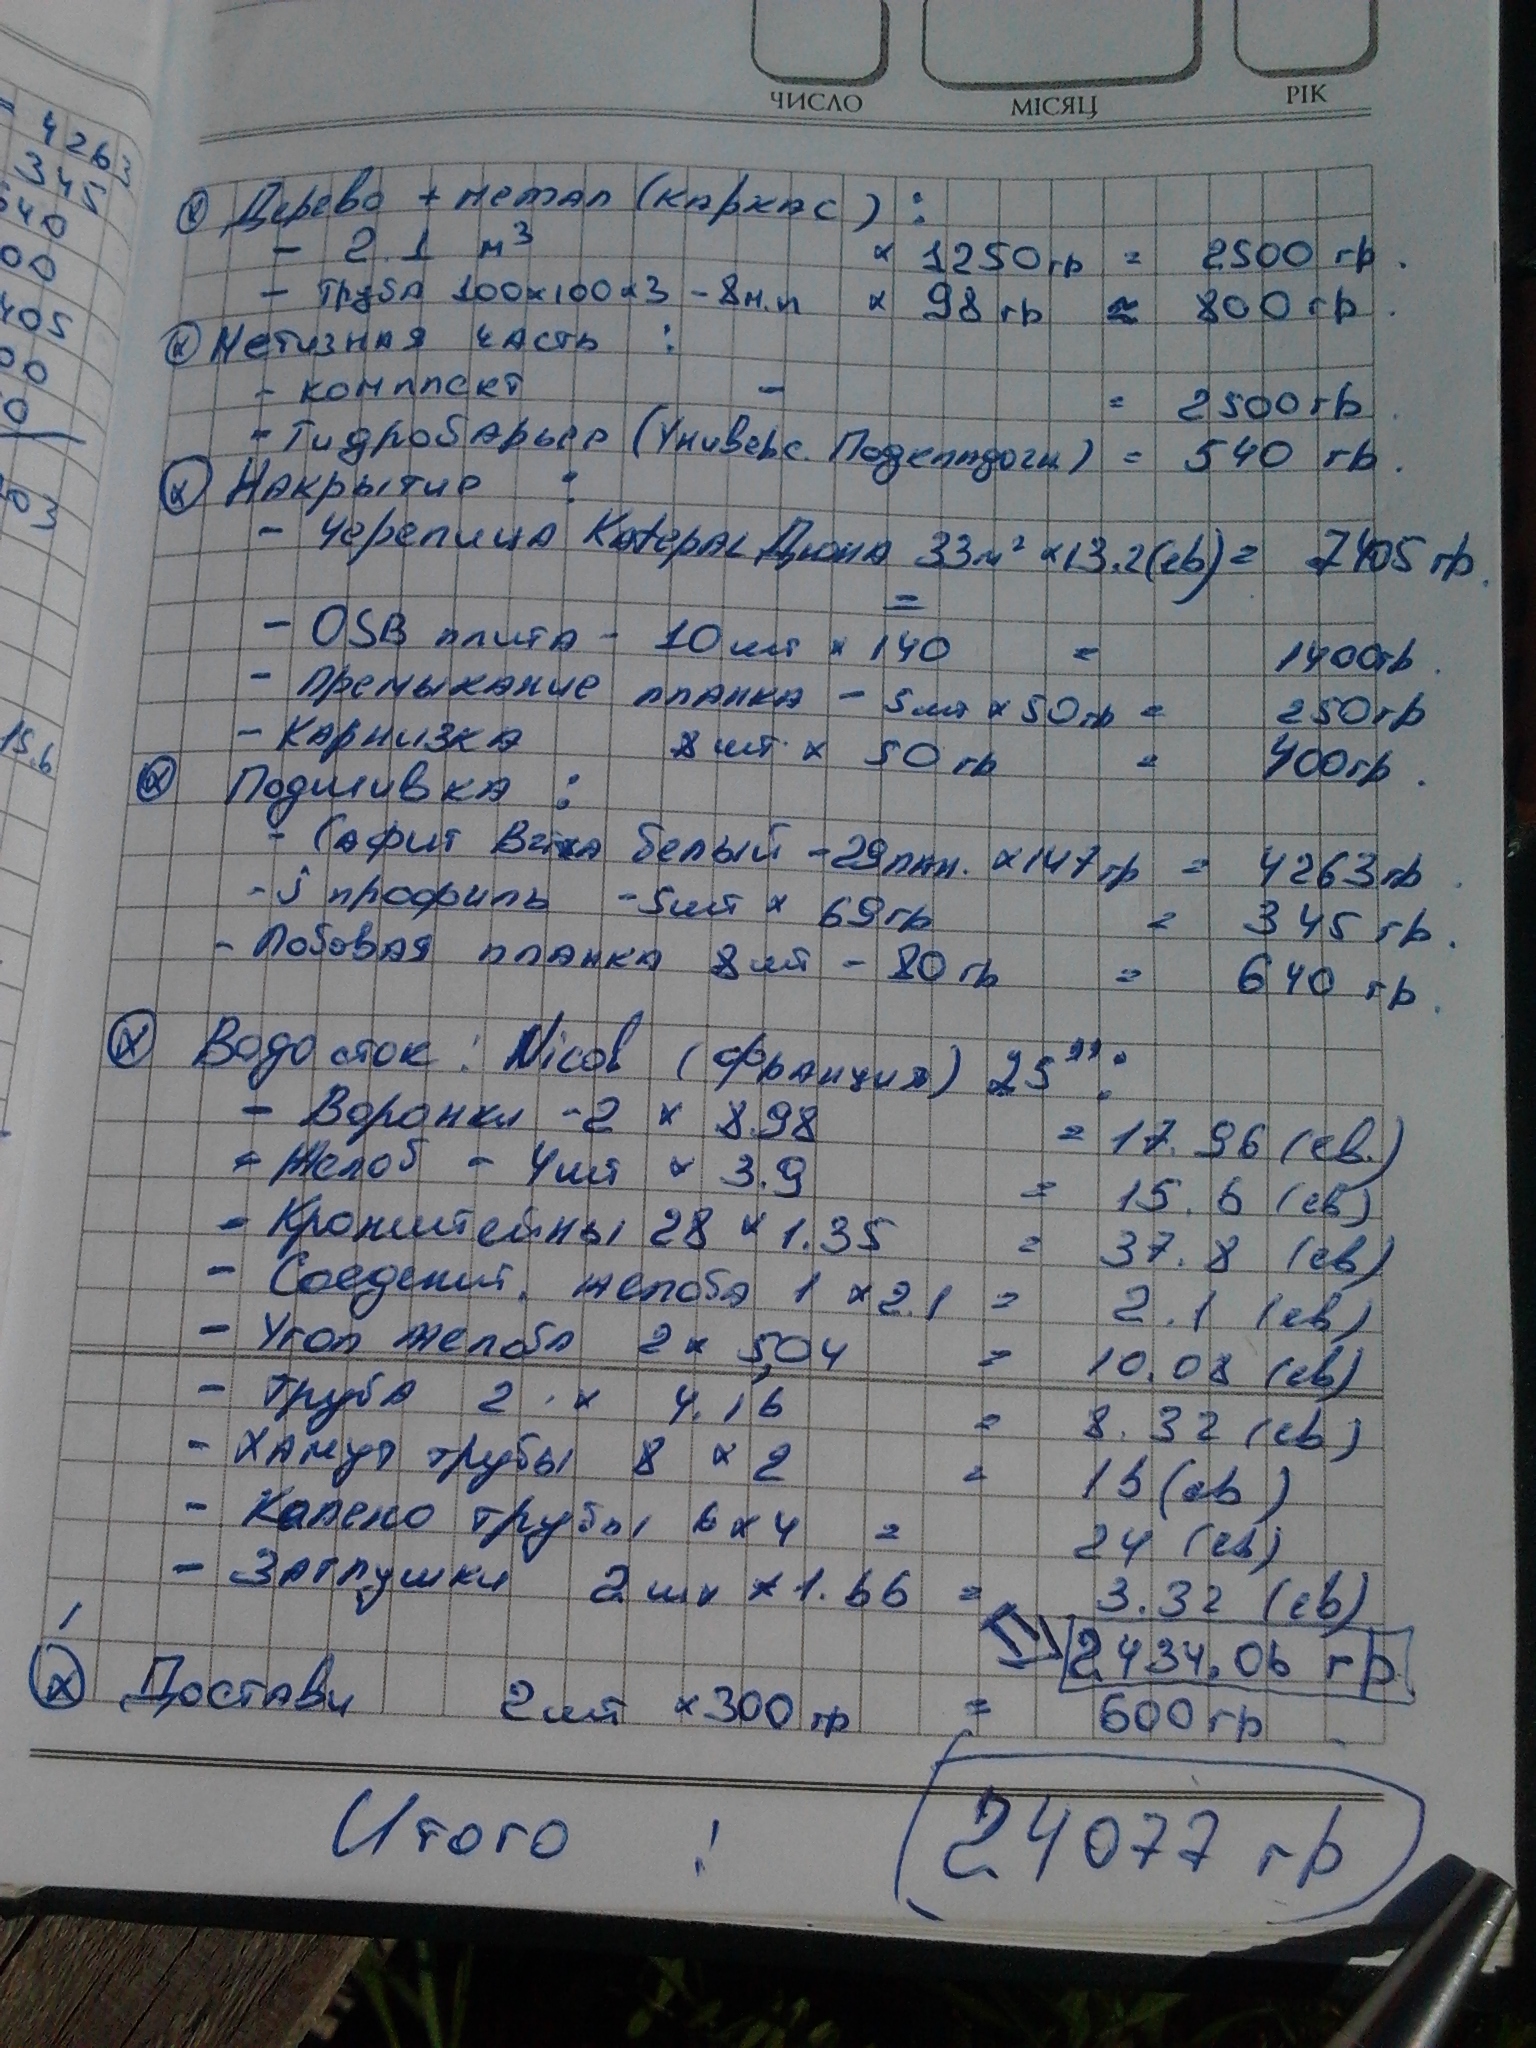 = 4263
345
640
00
405
00
0
203
15.6
ЧИСЛО МІСЯЦ РІК
Дерево + метал (каркас) :
- 2.1 м³ × 1250 гр = 2500 гр.
- труба 100×100×3 - 8м.п × 98 гр ≈ 800 гр.
Метизная часть :
- комплект - = 2500 гр.
- Гидробарьер (Универс. ) = 540 гр.
Накрытие :
- Черепица Katepal Дюна 33м² × 13.2 (ев) = 7405 гр.
=
- OSB плита - 10 шт × 140 = 1400 гр.
- Премыкание планка - 5 шт × 50 гр = 250 гр
- Карнизка 8 шт. × 50 гр = 400 гр.
Подшивка :
- Сафит белый - 29 пан. × 147 гр = 4263 гр.
- j профиль - 5 шт × 69 гр = 345 гр.
- Лобовая планка 8 шт - 80 гр = 640 гр.
Водосток : Nicoll (Франция) 25" :
- Воронки - 2 × 8.98 = 17.96 (ев.)
- Желоб - 4 шт × 3.9 = 15.6 (ев)
- Кронштейны 28 × 1.35 = 37.8 (ев)
- Соеденит. желоба 1 × 2.1 = 2.1 (ев)
- Угол желоба 2 × 5,04 = 10.08 (ев)
- Труба 2 × 4.16 = 8.32 (ев)
- Хамут трубы 8 × 2 = 16 (ев)
- Калено трубы 6 × 4 = 24 (ев)
- Заглушки 2 шт × 1.66 = 3.32 (ев)
2434.06 гр.
Доставки 2 шт × 300 гр = 600 гр.
Итого : 24077 гр